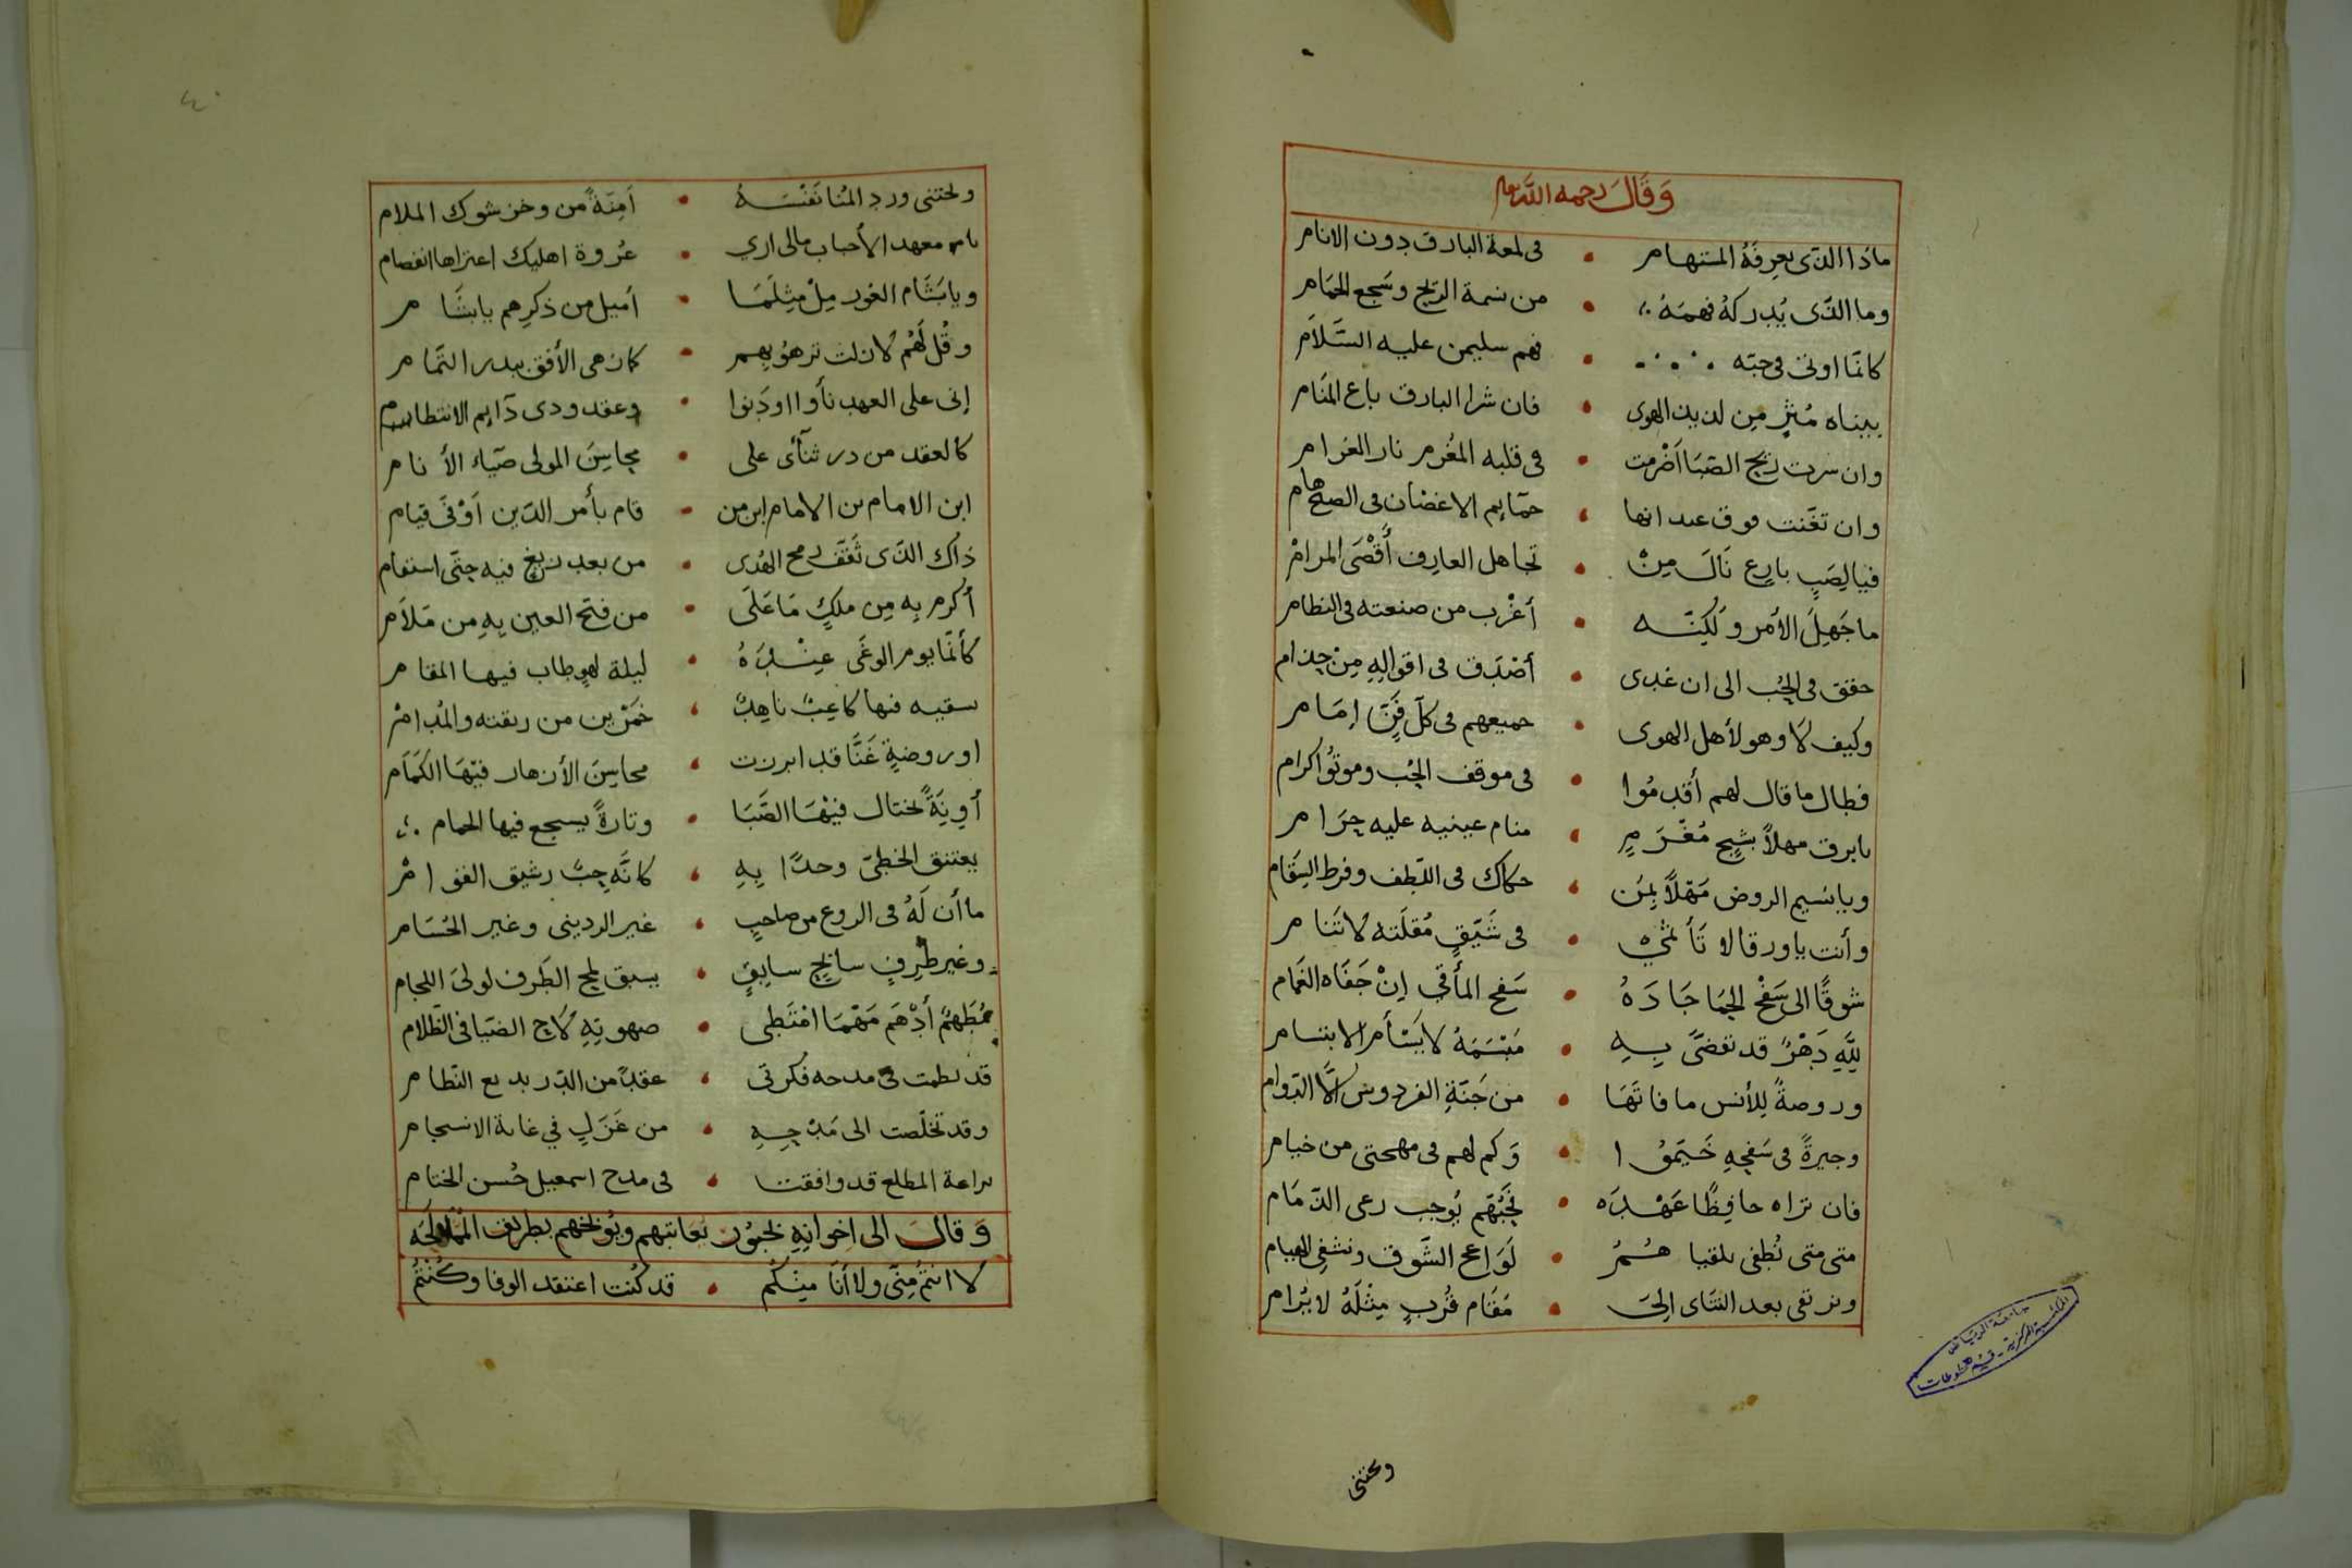 وَقَالَ رحمه الله تعم
ماذا الذى يعرفه المستهام • فى لمعة البارق دون الانام
وما الذى يُدركهُ فهمَهُ • من نسمة الريح وسَجع الحَمام
كانما اوتى فى حبّه • فهم سليمن عليه السَّلاَم
بيناه مُثرٍ مِن لذيذ الهوى • فان شرا البارق باع المنَام
وان سرت ريح الصَبَا اَضْرمت • فى قلبه المُغْرم نار الغرام
وان تغَنت فوق عيدانها • حمَايم الاغصان فى الصبح هام
فيا لِصَبٍ بارِع نَالَ مِنْ • تجاهل العارِف أقْصَى المرامْ
ما جَهِلَ الأمر ولكِنّه • أغْرب من صنعته فى النظام
حقق فى الحُب الى ان غدى • أصْدَق فى اقوالِهِ مِنْ حذام
وكيف لا وهو لأهل الهوى • جميعهم فى كل فَنٍّ إمَام
فطال ما قال لهم أقدمُوا • فى موقف الحُب وموتُوا كرام
يابرق مهلاً بشجٍ مُغْرَمٍ • منام عينيه عليه حِرَام
ويا نسيم الروض مَهْلاً بمَن • حكاك فى اللطف وفرط السَقَام
وأنت يا ورقا لا تَأ • فى شَيّقٍ مُقلَته لا تَنام
شوقًا الى سَفْح الحِمَا جَادَهُ • سَفح المأقى اِنْ جَفَاه الغَمام
لِلَّهِ دَهْرٌ قد تقضىَّ بِهِ • مَبْسَمَهُ لا يَسْأم الابتسام
وروضةً لِلأنس ما فاتَهَا • من جَنّةِ الفردوس الَّا الدَّوام
وجيرةً فى سَفحِهِ خَيّمُوا • وَكم لهم فى مهجتى من خيام
فان تراه حافِظًا عَهْدَه • فحُبّهم يُوجب رعى الذّمَام
متى متى تُطفى بلقياهُمُ • لَوَاعج الشَّوق ونشفِى الهيام
ونرتقى بعد التنَاى اِلى • مَقَام قُربٍ مِثْلَهُ لا يُرام
ونجتنى
ونجتنى ورد المُنا نَفْسَهُ • آمِنَةً من وخز شوك الملام
يا معهد الأحباب مالى ارى • عُروة اهليك اعتراها انفصام
ويا بَشَام الغور مِلْ مِثلَمَا • أميل من ذكرهم يا بشَام
وقُل لَهُم لا زلت تزهوُ بِهم • كما زهى الأفق ببدر التمَام
إنى على العهد نأوا اودَنوا • وعقد ودى دآيم الانتظام
كالعقد من در ثنآى على • محاسِن المولى ضيَاء الأنام
ابن الامام بن الامام ابن من • قام بأمر الدّين اَوْفَى قيام
ذاك الذى ثَقّف رمح الهُدى • من بعد زيغ فيه حتّى استقام
أكرم بِهِ مِن ملكٍ مَا عَلَى • من فتح العين بِهِ من مَلاَم
كأنما يوم الوغَى عِنْدَهُ • ليلة لهوٍ طاب فيها المقام
سقيه فيها كاعِبٌ ناهِدٌ • خَمْرين من ريقته والمُدامْ
او روضةٍ غَنَّا قد ابرزت • محاسِن الأزهار فيْهَا الكَمَام
أوِنَةً تختال فيْهَا الصَّبَا • وتارةً يسجع فيها الحمام
يعتنق الخطىّ وجدًا بِهِ • كانَّه حِبٌ رشيق القوامْ
ما أن لَهُ فى الروع من صاحبٍ • غير الردينى وغير الحُسَام
وغير طِرفٍ سابحٍ سابِقٍ • يسبق لمح الطَرف لولىَ اللجام
مُطَهّمٌ أدْهَم مَهْمَا امْتَطى • صهوتِهِ لاح الضيَا فى الظلام
قد نظمت فى مدحه فكرتى • عقدًا من الدّر بديع النّظام
وقد تخلّصت الى مَدْحِهِ • من غَزَلٍ في غاية الانسجام
براعة المطلع قد وافقت • فى مدح اسمعيل حُسن الختام
وَقالَ الى اِخوانِهِ نعاتبهم ويُوبخهم بطريف
لا انتمُ مِنّى ولا أنَا مِنْكُم • قد كُنت اعتقد الوفا وكُنْتُمُ
جامعة الرياض
المكتبة المركزية - قسم المخطوطات